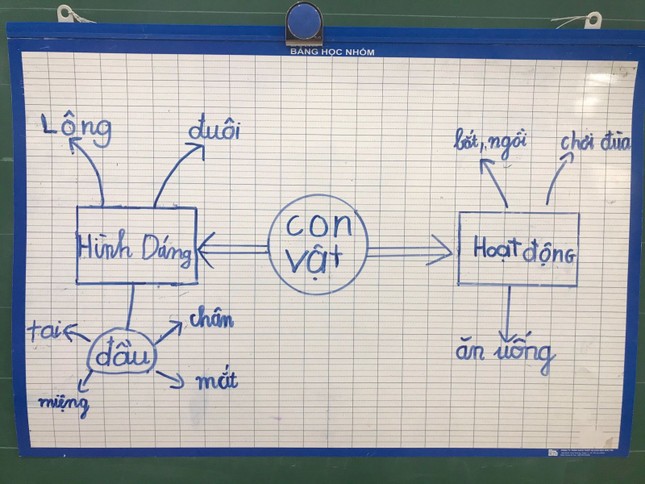 BẢNG HỌC NHÓM
Lông
đuôi
bắt, ngồi
chơi đùa
con
vật
Hình Dáng
Hoạt động
tai
chân
đầu
mắt
miệng
ăn uống